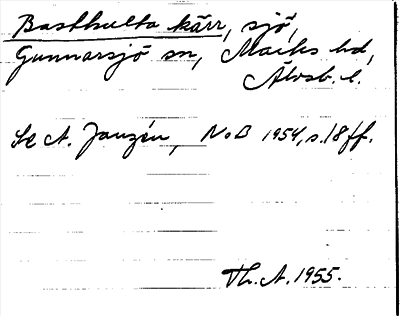 Basthulta kärr, sjö,
Gunnarsjö sn, Marks hd,
Älvsb. l.
Se A. Janzén, NoB 1954, s. 18 ff.
Th. A. 1955.